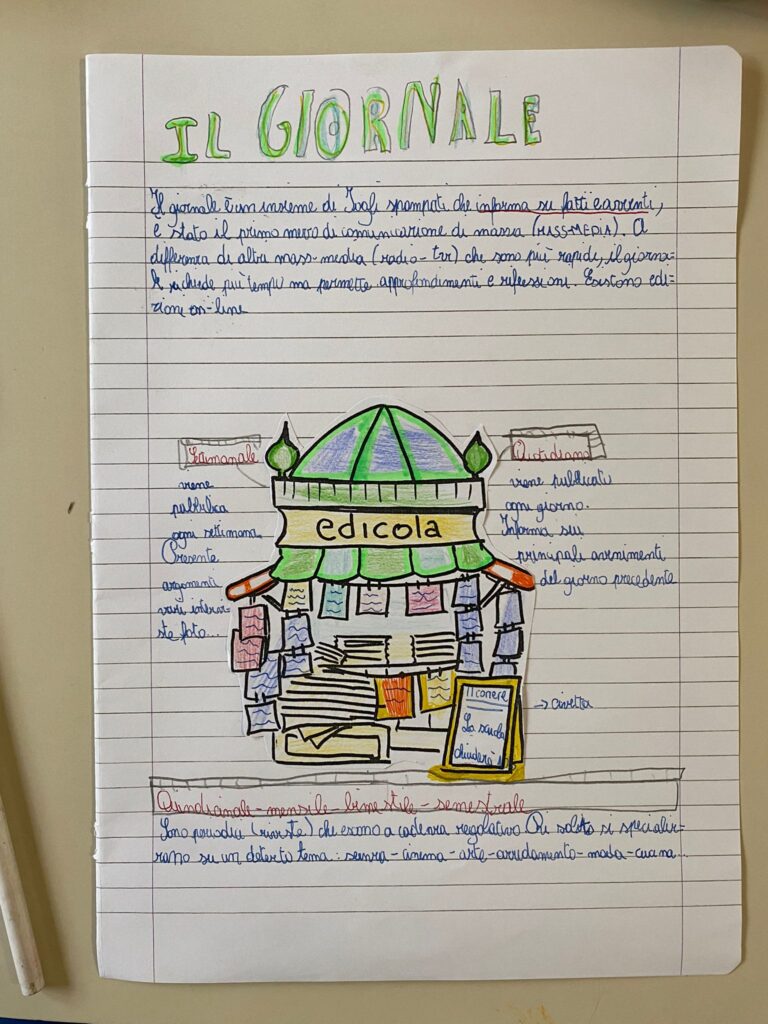 IL GIORNALE
Il giornale è un insieme di fogli stampati che informa su fatti e eventi,
è stato il primo mezzo di comunicazione di massa (MASS-MEDIA). A
differenza di altri mass-media (radio-tv) che sono più rapidi, il giorna-
le richiede più tempi ma permette approfondimenti e riflessioni. Esistono edi-
zioni on-line
Settimanale
viene
pubblica
ogni settimana
Presente
argomenti
vari interv-
ste foto...
Quotidiano
viene pubblicati
ogni giorno.
Informa sui
principali avvenimenti
del giorno precedente
edicola
Il corriere
La scuola
chiuderà
→ civetta
Quindicinale - mensile - bimestile - semestrale
Sono periodici (riviste) che escono a cadenza regolativa Di solito si specializ-
zano su un deterto tema: scienza - cinema - arte - arredamento - moda - cucina...